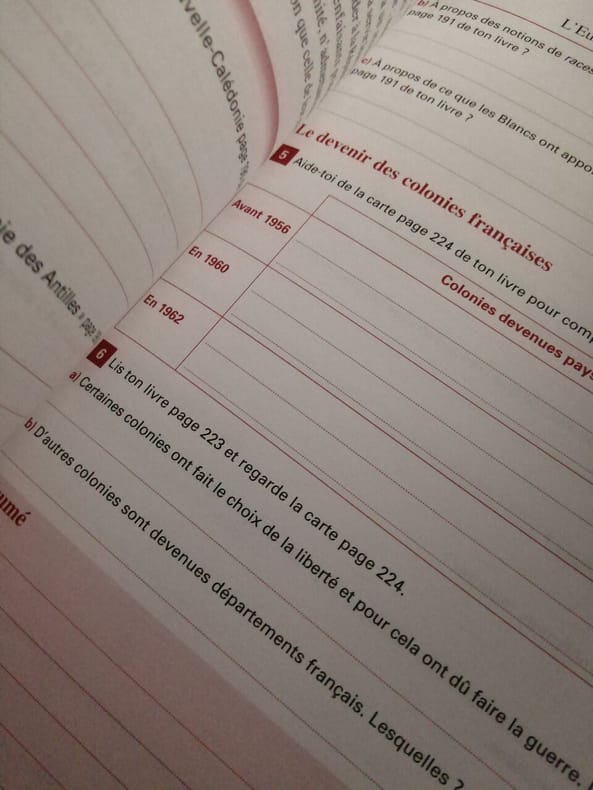 velle-Calédonie page
ie des Antilles page
L'Eu
b) À propos des notions de races
page 191 de ton livre ?
c) À propos de ce que les Blancs ont appo
page 191 de ton livre ?
Le devenir des colonies françaises
5 Aide-toi de la carte page 224 de ton livre pour comp
Colonies devenues pays
Avant 1956
En 1960
En 1962
6 Lis ton livre page 223 et regarde la carte page 224.
a) Certaines colonies ont fait le choix de la liberté et pour cela ont dû faire la guerre.
b) D'autres colonies sont devenues départements français. Lesquelles ?
umé